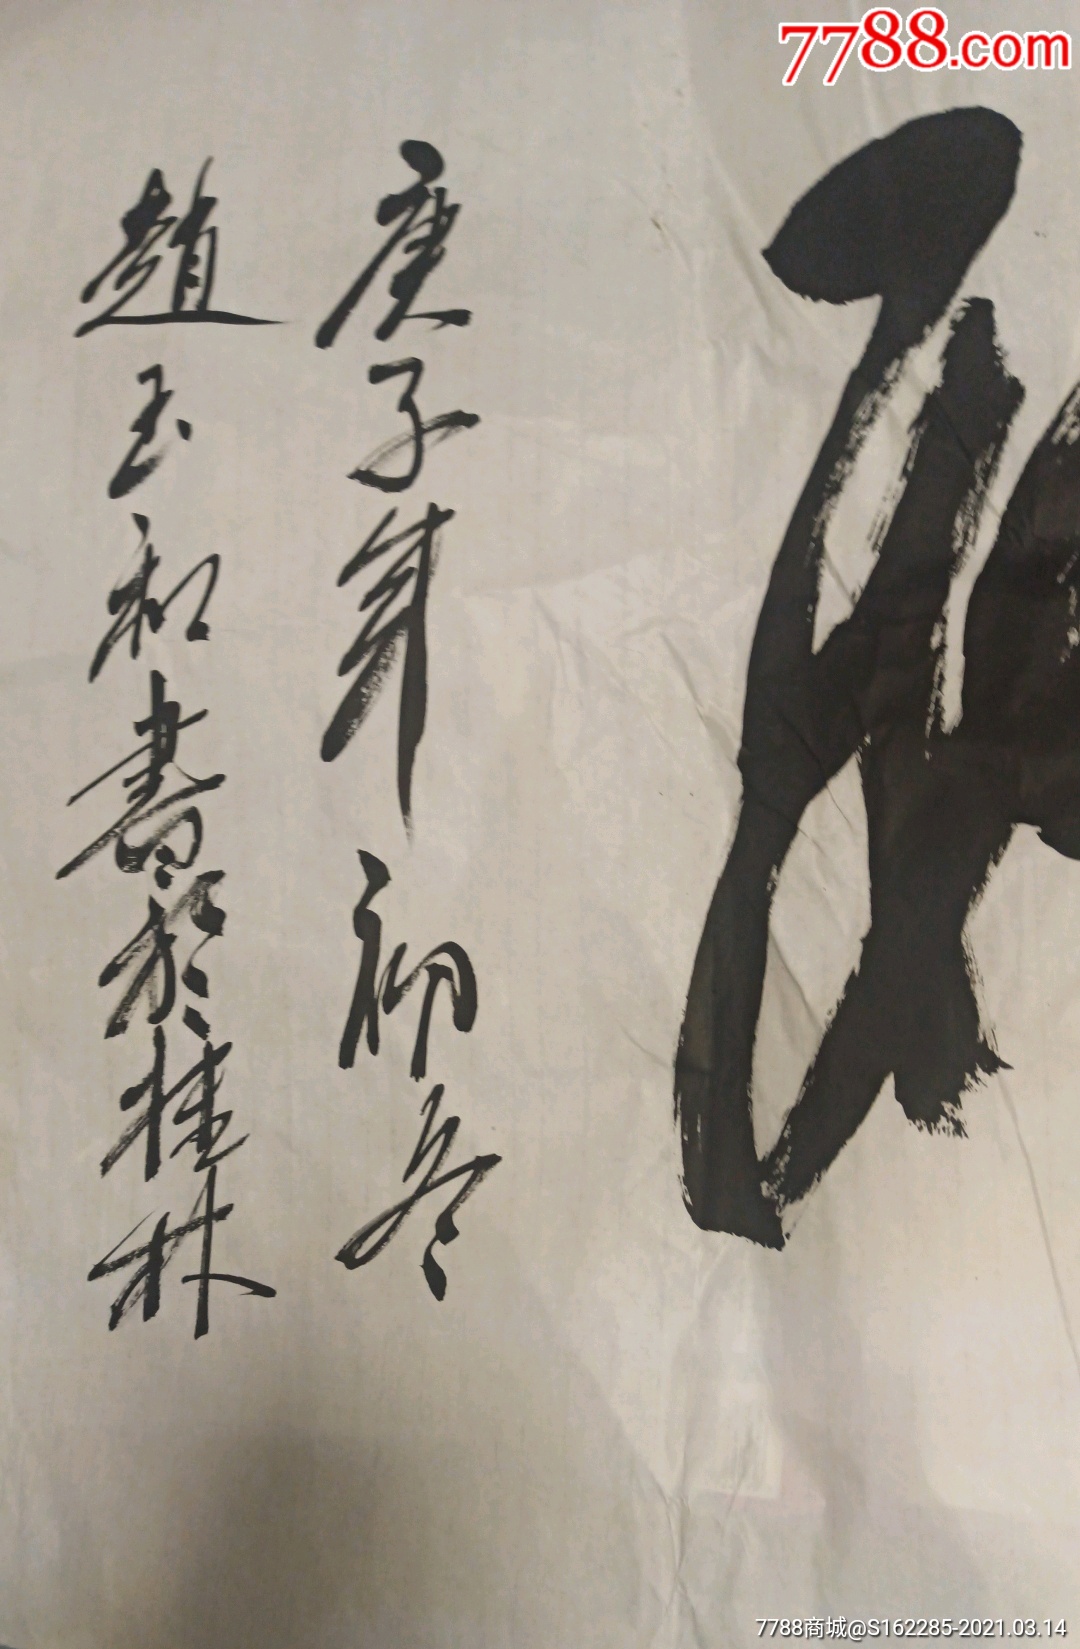 7788.com
庚子年初冬
趙玉和書於桂林
7788商城@S162285-2021.03.14